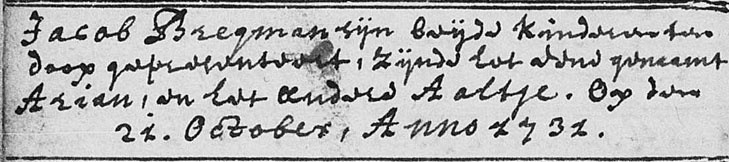 Jacob Bregman zijn beijde kinderen ten
doop gepresenteert, zijnde het eene genaamt
Arian, en het andere Aaltje. Op den
21. October, Anno 1731.